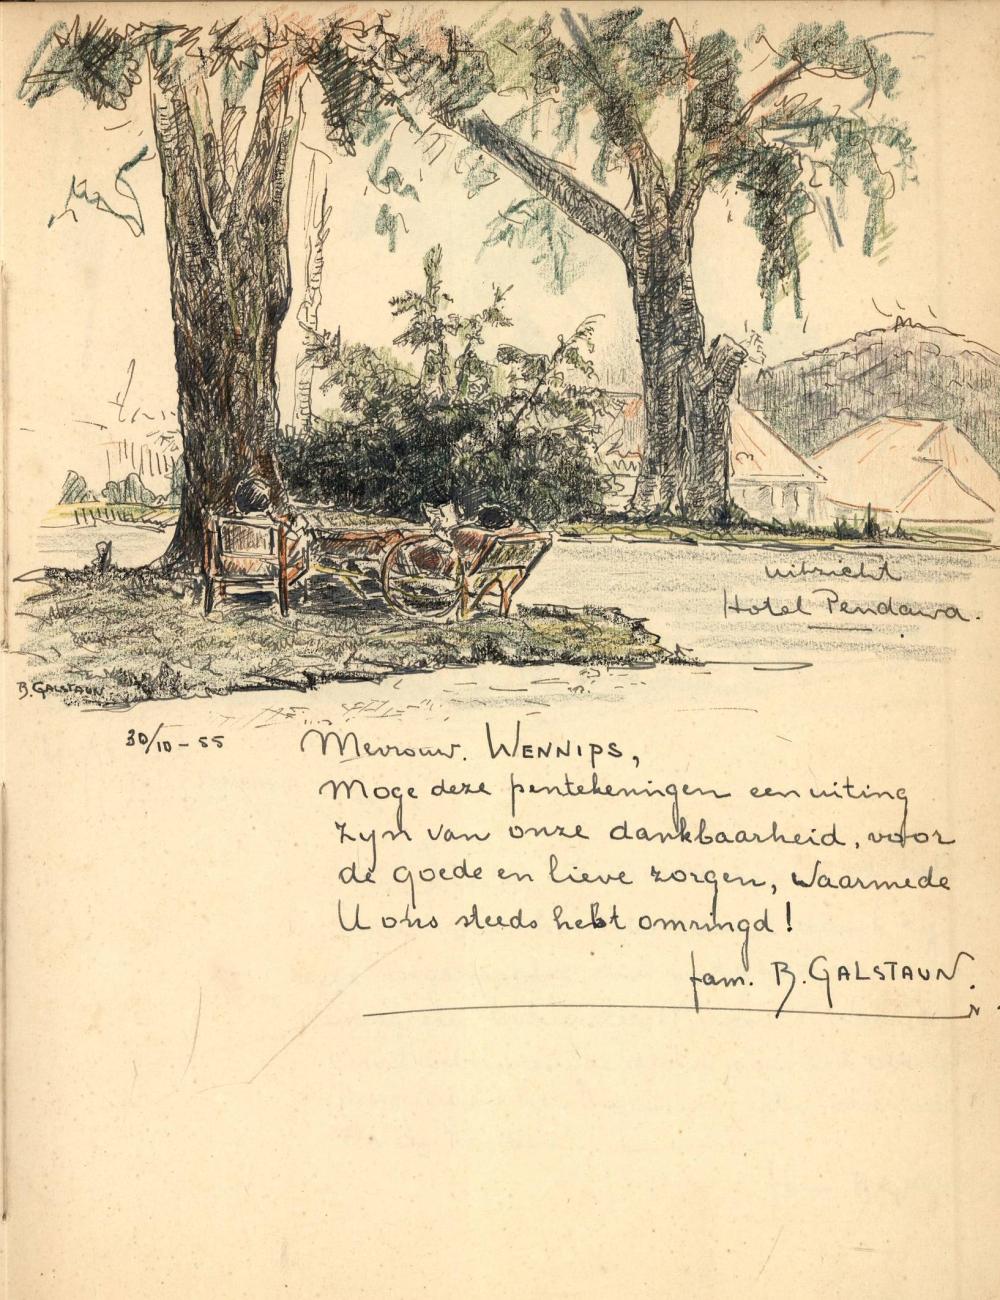 uitzicht
Hotel Pendawa.
B. GALSTAUN
30/10-55
Mevrouw. WENNIPS,
Moge deze pentekeningen een uiting
zyn van onze dankbaarheid, voor
de goede en lieve zorgen, waarmede
U ons steeds hebt omringd!
fam. B. GALSTAUN.